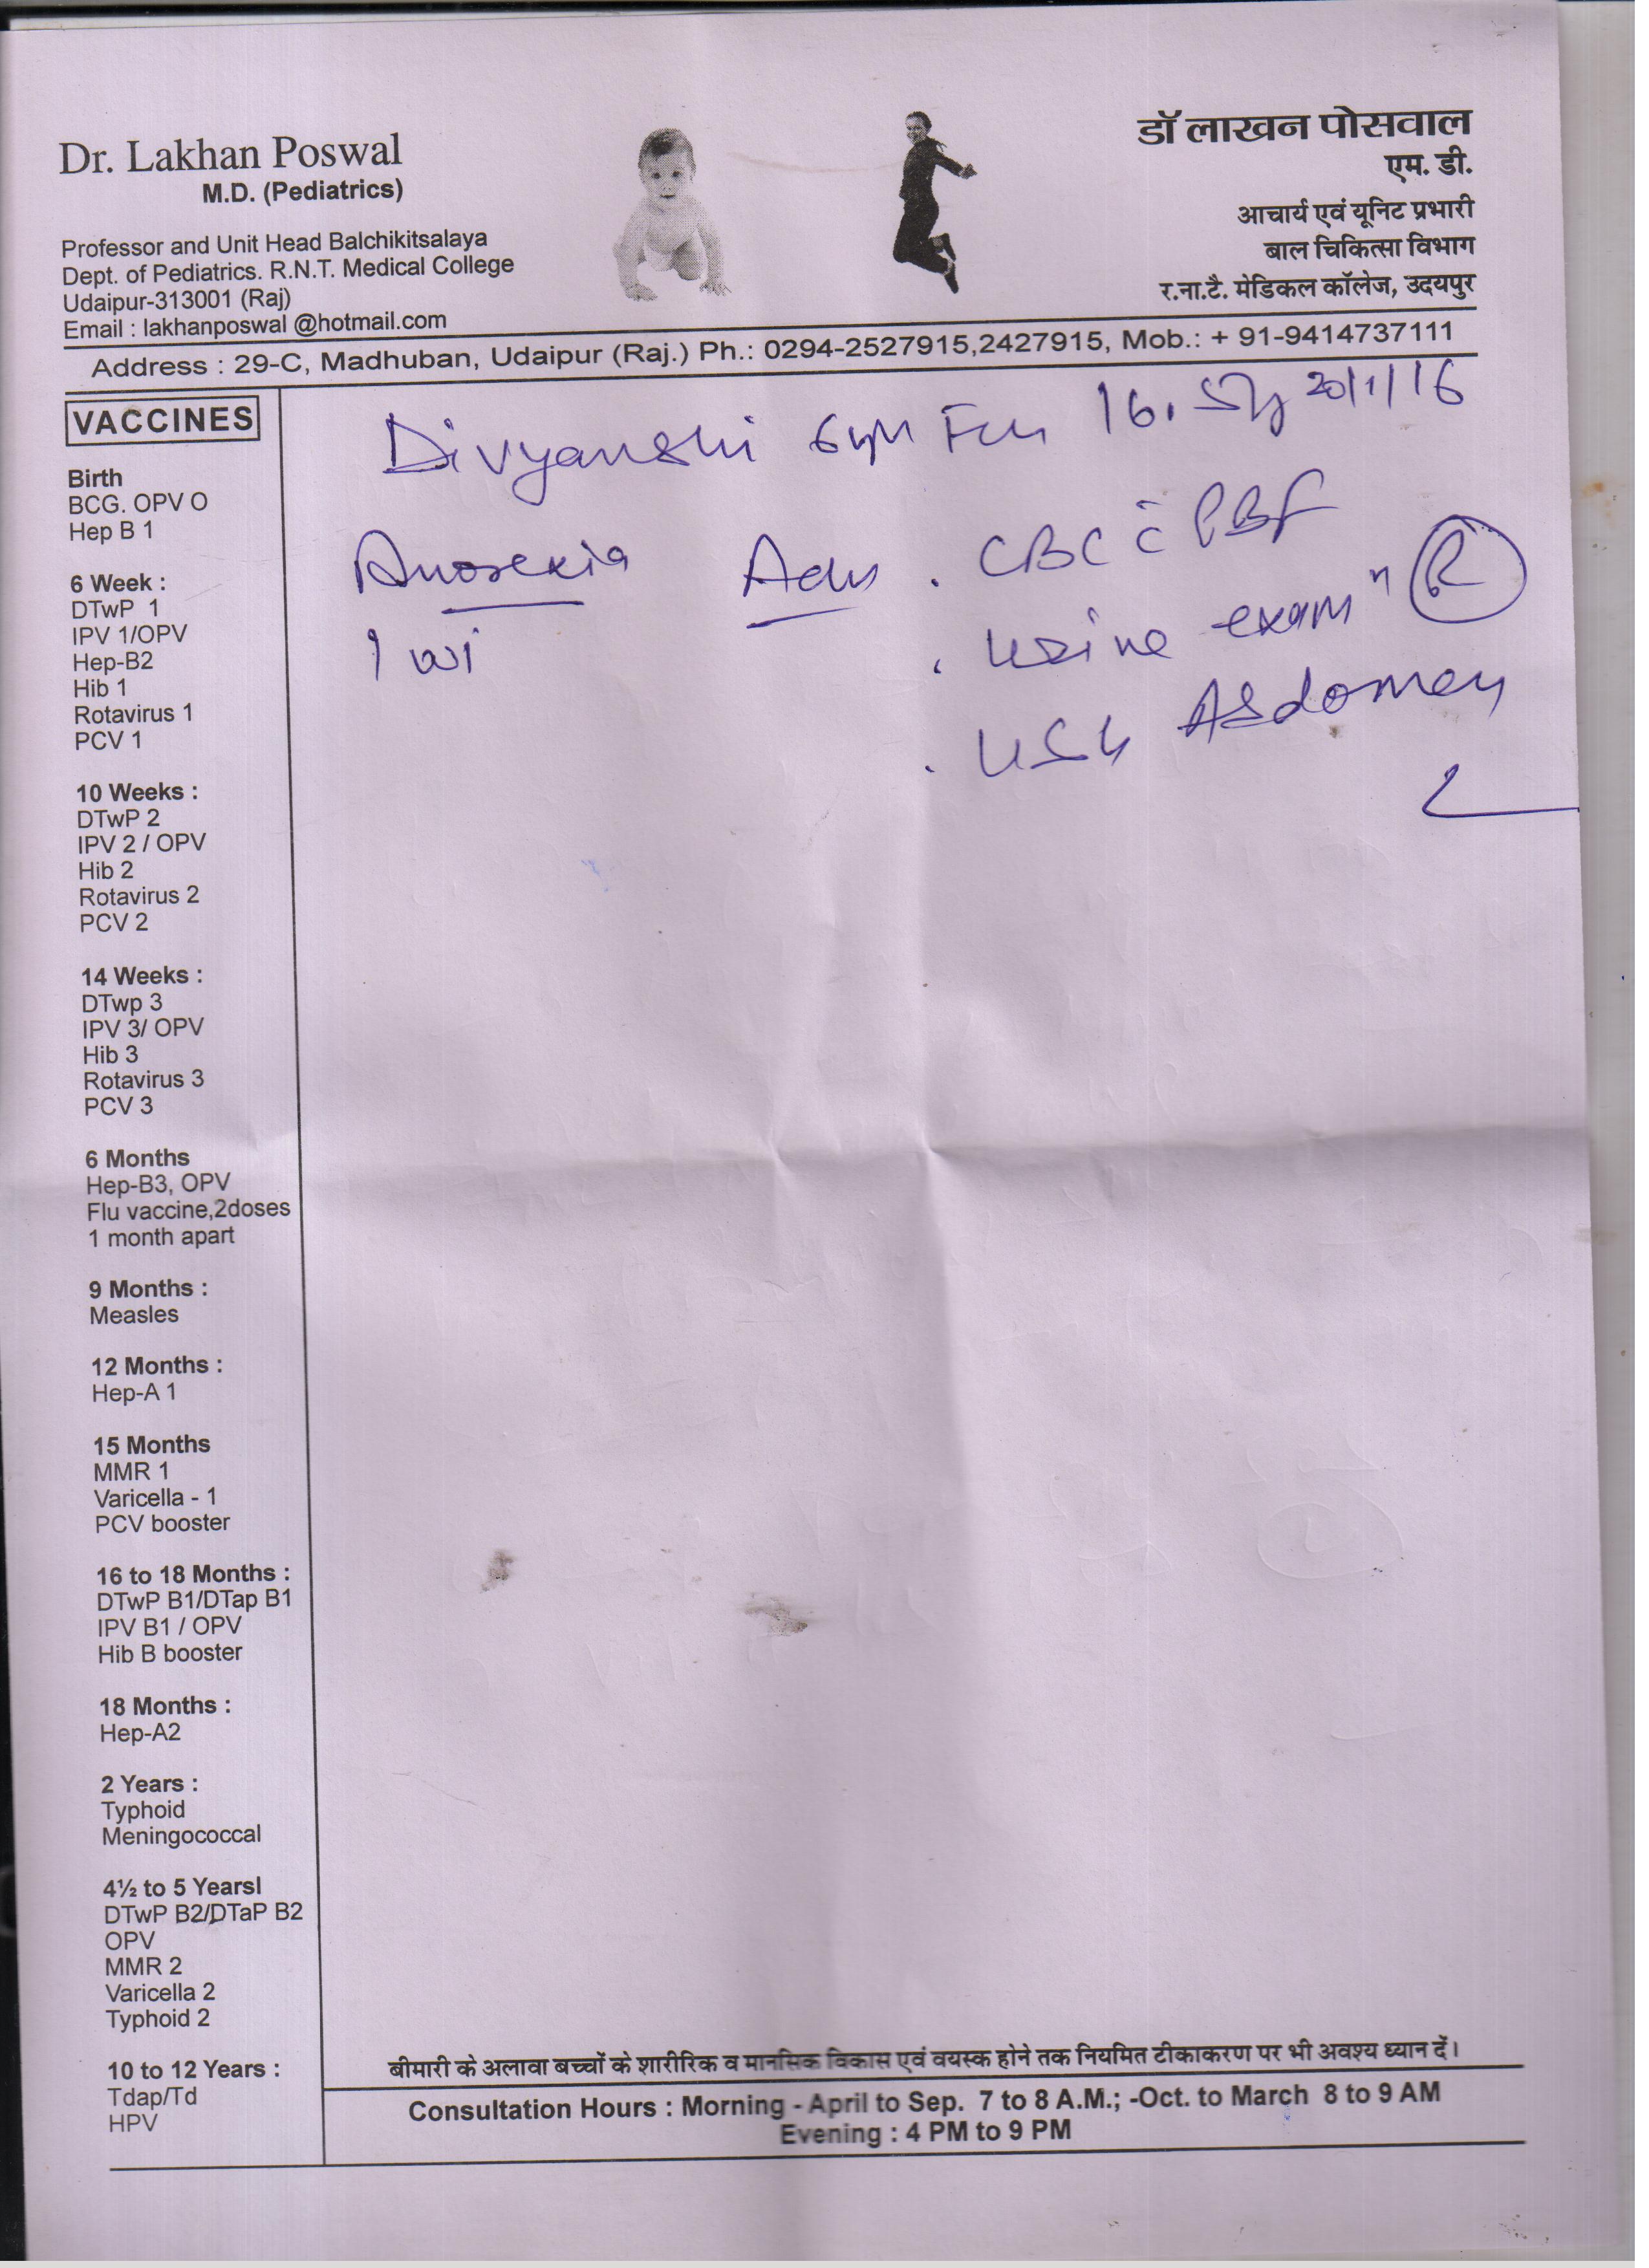 Dr. Lakhan Poswal
M.D. (Pediatrics)
Professor and Unit Head Balchikitsalaya
Dept. of Pediatrics. R.N.T. Medical College
Udaipur-313001 (Raj)
Email : lakhanposwal @hotmail.com
डॉ लाखन पोसवाल
एम. डी.
आचार्य एवं यूनिट प्रभारी
बाल चिकित्सा विभाग
र.ना.टै. मेडिकल कॉलेज, उदयपुर
Address : 29-C, Madhuban, Udaipur (Raj.) Ph.: 0294-2527915,2427915, Mob.: + 91-9414737111
VACCINES
Birth
BCG. OPV O
Hep B 1
6 Week :
DTwP 1
IPV 1/OPV
Hep-B2
Hib 1
Rotavirus 1
PCV 1
10 Weeks :
DTwP 2
IPV 2 / OPV
Hib 2
Rotavirus 2
PCV 2
14 Weeks :
DTwp 3
IPV 3/ OPV
Hib 3
Rotavirus 3
PCV 3
6 Months
Hep-B3, OPV
Flu vaccine,2doses
1 month apart
9 Months :
Measles
12 Months :
Hep-A 1
15 Months
MMR 1
Varicella - 1
PCV booster
16 to 18 Months :
DTwP B1/DTap B1
IPV B1 / OPV
Hib B booster
18 Months :
Hep-A2
2 Years :
Typhoid
Meningococcal
4½ to 5 Yearsl
DTwP B2/DTaP B2
OPV
MMR 2
Varicella 2
Typhoid 2
10 to 12 Years :
Tdap/Td
HPV
Divyanshi 20/1/16
Anorexia
Adv . CBC c̄ PBF
. Urine examn (R)
. USG Abdomen
बीमारी के अलावा बच्चों के शारीरिक व मानसिक विकास एवं वयस्क होने तक नियमित टीकाकरण पर भी अवश्य ध्यान दें।
Consultation Hours : Morning - April to Sep. 7 to 8 A.M.; -Oct. to March 8 to 9 AM
Evening : 4 PM to 9 PM